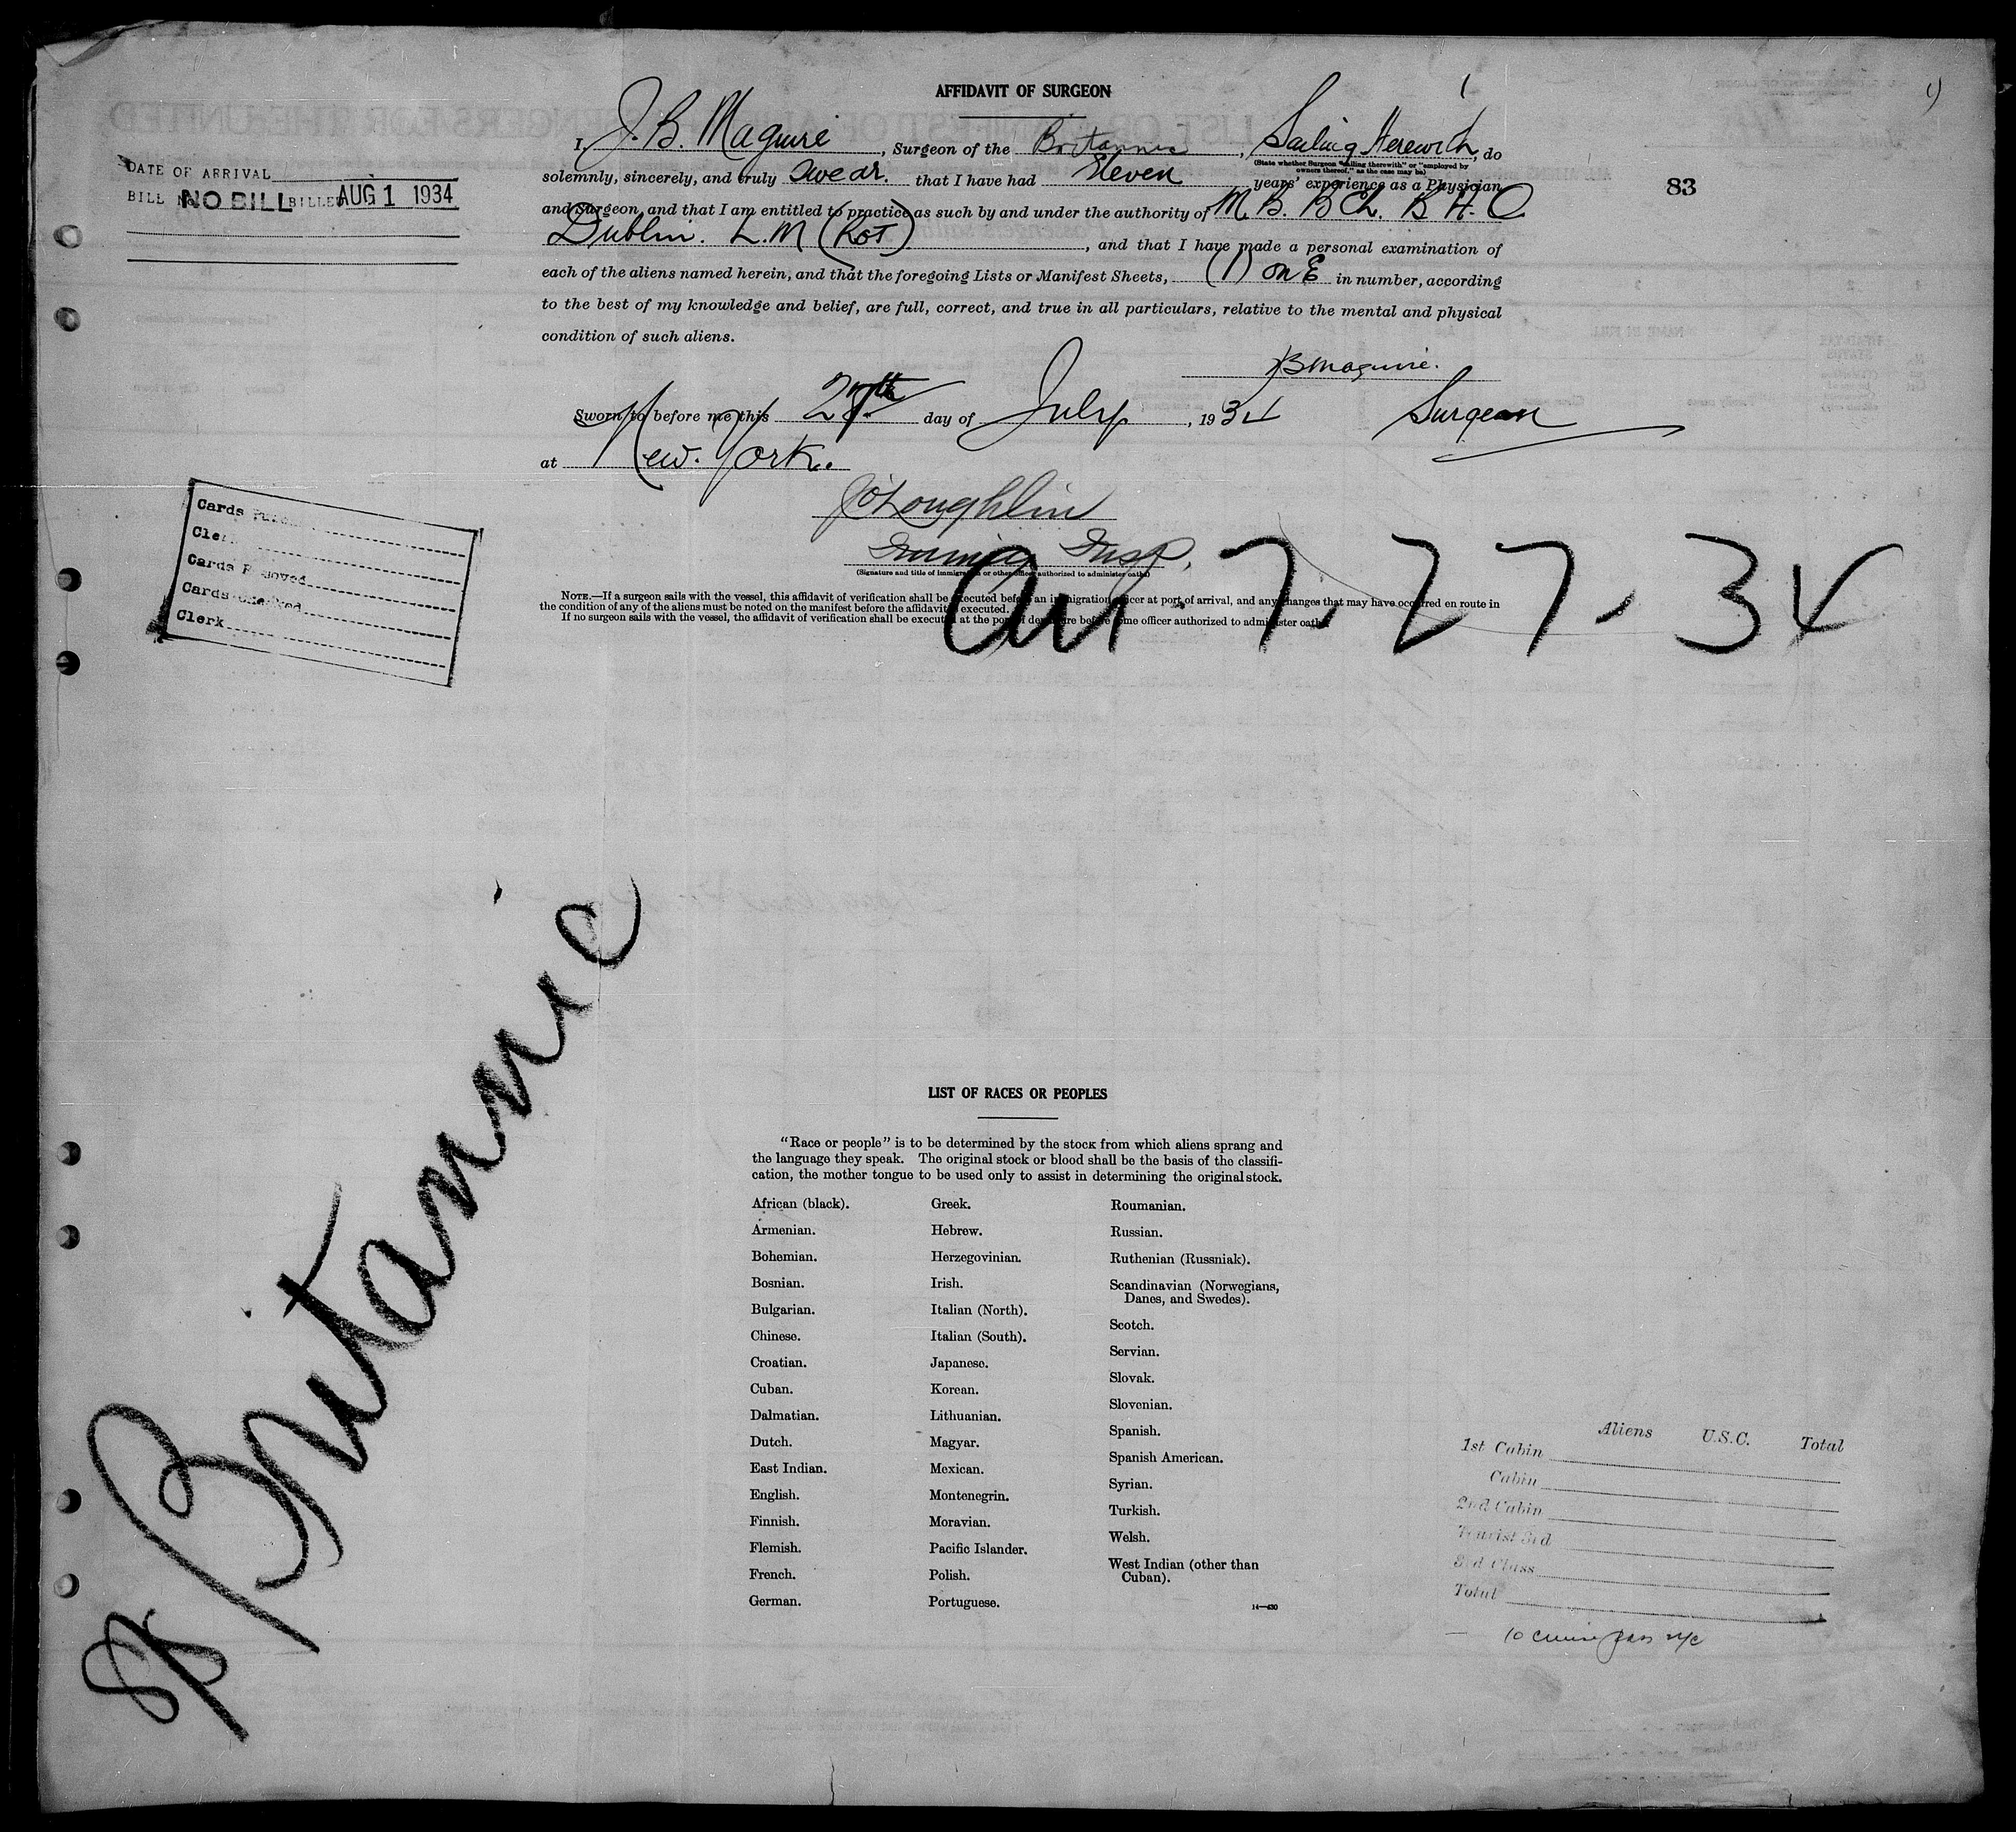 AFFIDAVIT OF SURGEON
I, J. B. Maguire, Surgeon of the Britannic, Sailing Herewith, do
(State whether Surgeon "sailing therewith" or "employed by
owners thereof," as the case may be)
solemnly, sincerely, and truly swear. that I have had Eleven years' experience as a Physician
and Surgeon, and that I am entitled to practice as such by and under the authority of M.B. B Ch. B H. O
Dublin. L.M (Rot), and that I have made a personal examination of
each of the aliens named herein, and that the foregoing Lists or Manifest Sheets, (1) onE in number, according
to the best of my knowledge and belief, are full, correct, and true in all particulars, relative to the mental and physical
condition of such aliens.
JBMaguire.
Surgeon
Sworn to before me this 27th day of July, 1934
at New. York.
J O'Loughlin
Immig Insp.
(Signature and title of immigration or other officer authorized to administer oaths)
NOTE.—If a surgeon sails with the vessel, this affidavit of verification shall be executed before an immigration officer at port of arrival, and any changes that may have occurred en route in
the condition of any of the aliens must be noted on the manifest before the affidavit is executed.
If no surgeon sails with the vessel, the affidavit of verification shall be executed at the port of departure before some officer authorized to administer oaths.
DATE OF ARRIVAL
BILL No. NO BILL BILLED AUG 1 1934
83
Cards
Clerk
Cards Removed
Cards Checked
Clerk
Arr. 7. 27. 34
SS Britannic
LIST OF RACES OR PEOPLES
"Race or people" is to be determined by the stock from which aliens sprang and
the language they speak. The original stock or blood shall be the basis of the classifi-
cation, the mother tongue to be used only to assist in determining the original stock.
African (black).
Armenian.
Bohemian.
Bosnian.
Bulgarian.
Chinese.
Croatian.
Cuban.
Dalmatian.
Dutch.
East Indian.
English.
Finnish.
Flemish.
French.
German.
Greek.
Hebrew.
Herzegovinian.
Irish.
Italian (North).
Italian (South).
Japanese.
Korean.
Lithuanian.
Magyar.
Mexican.
Montenegrin.
Moravian.
Pacific Islander.
Polish.
Portuguese.
Roumanian.
Russian.
Ruthenian (Russniak).
Scandinavian (Norwegians,
Danes, and Swedes).
Scotch.
Servian.
Slovak.
Slovenian.
Spanish.
Spanish American.
Syrian.
Turkish.
Welsh.
West Indian (other than
Cuban).
14—430
Aliens U.S.C. Total
1st Cabin
Cabin
2nd Cabin
Tourist 3rd
3rd Class
Total
10 cruise pass